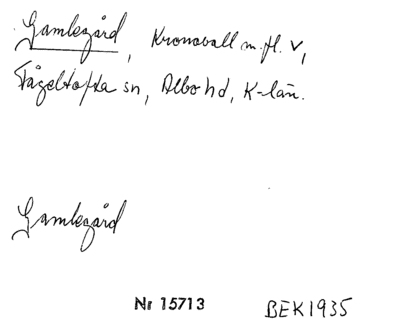 Gamlegård, Kronovall m.fl. V,
Fågeltofta sn, Albo hd, K-län.
Gamlegård
Nr 15713 BEK 1935